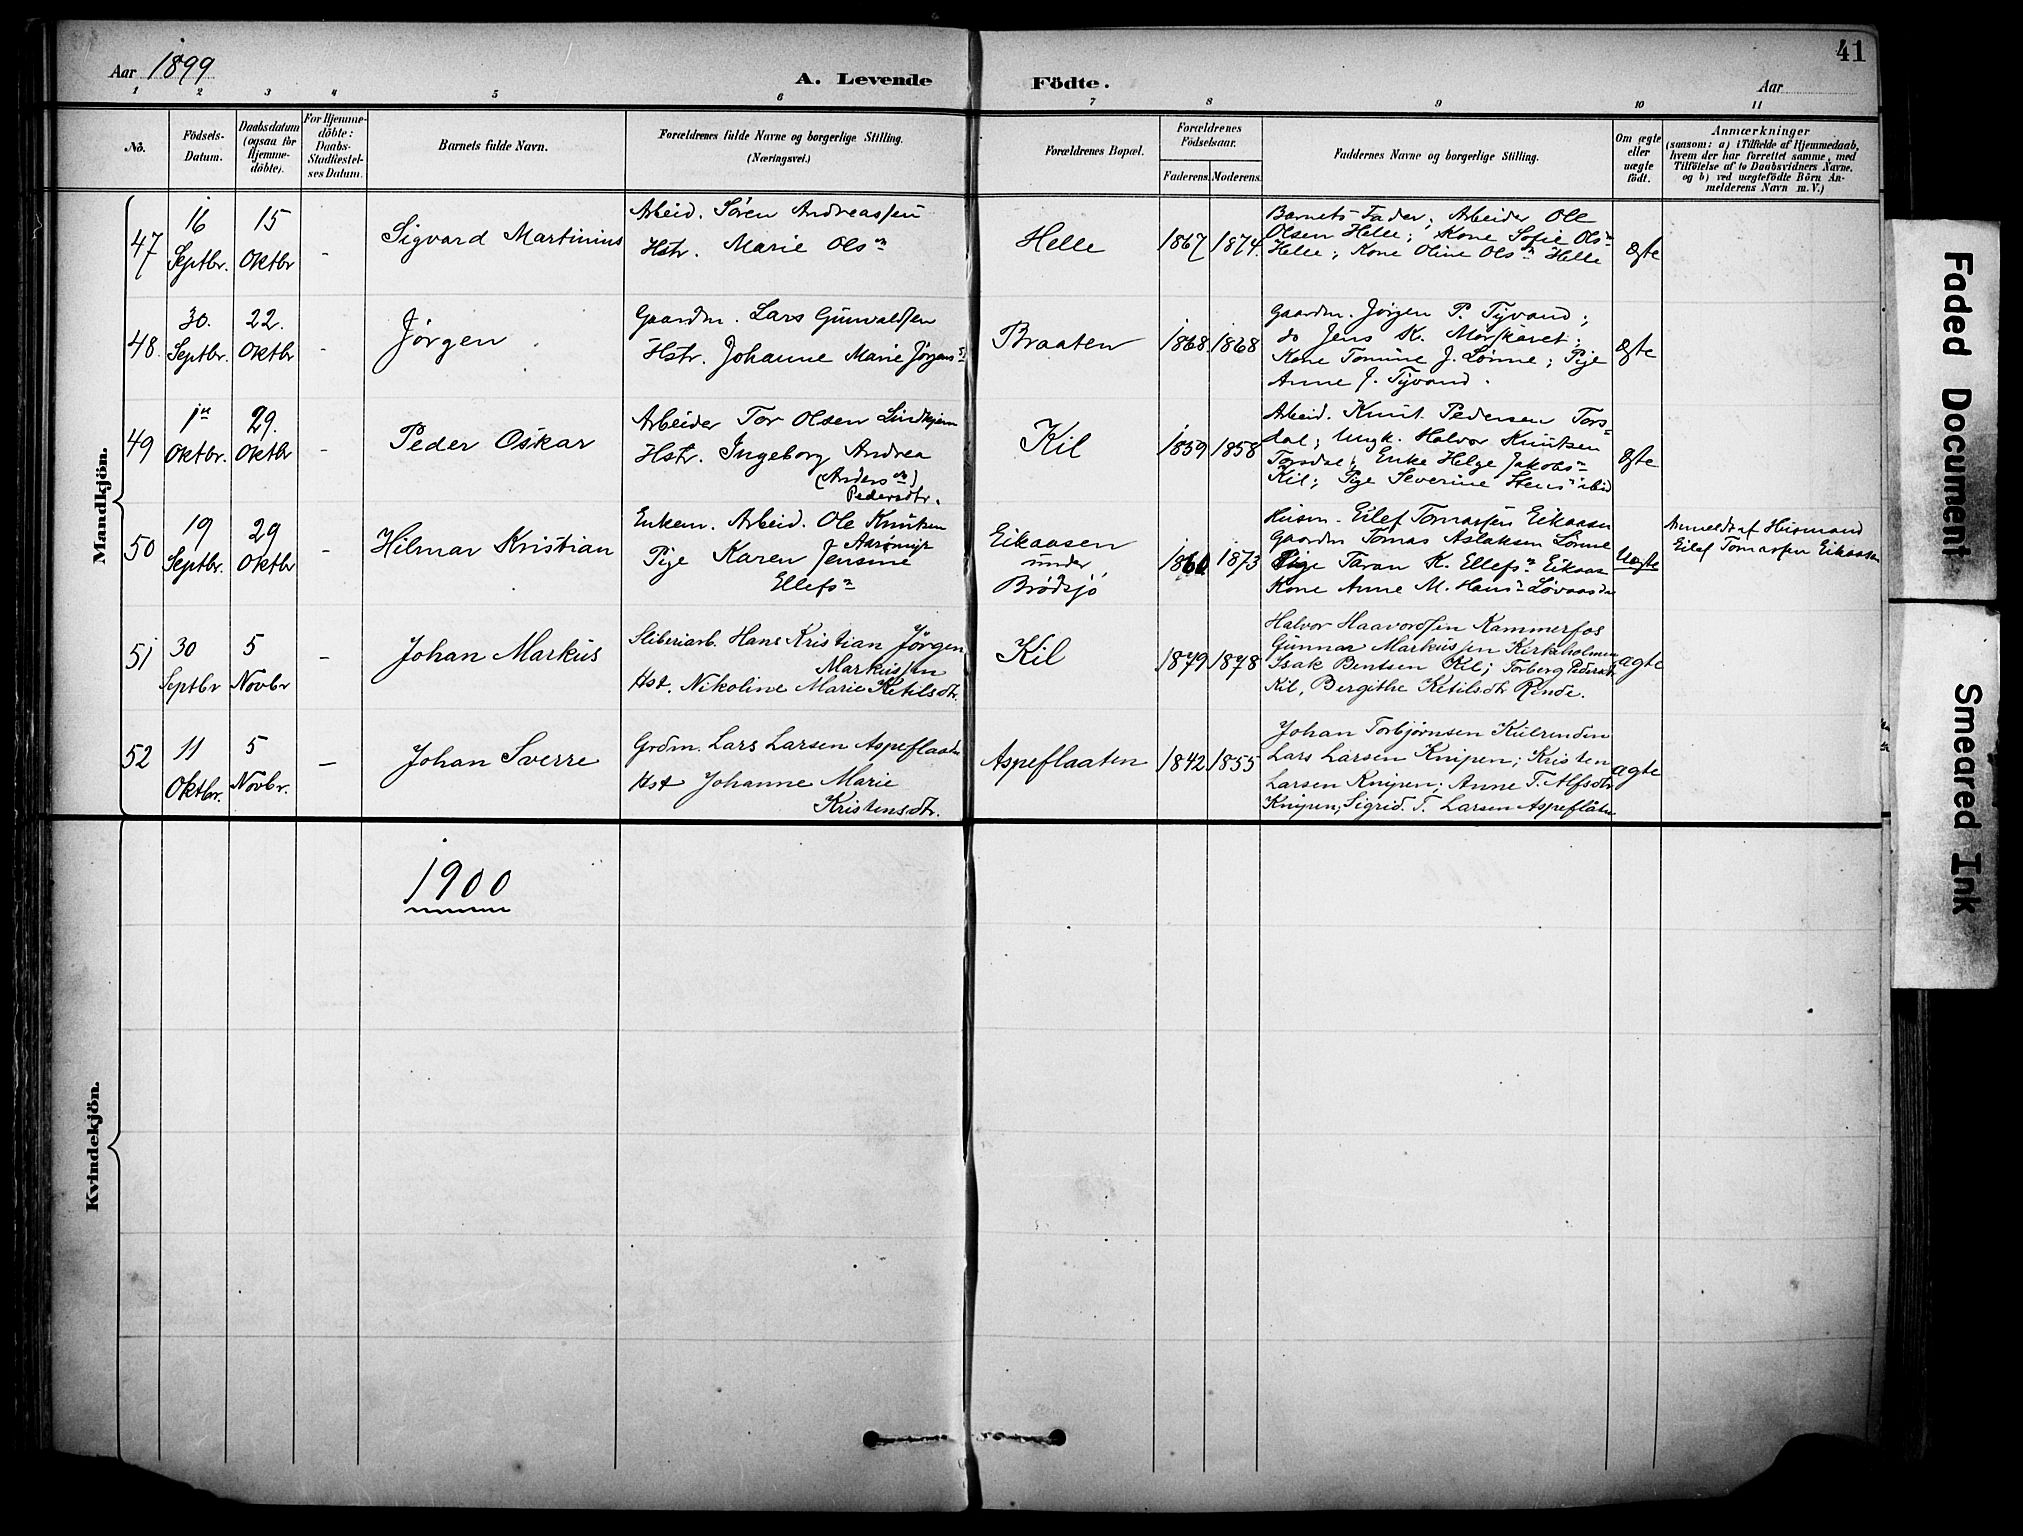 Aar 1899
A. Levende
Födte.
Aar
41
1 2 3 4 5 6 7 8 9 10 11
Nô.
Födsels-Datum.
Daabsdatum (ogsaa for Hjemme-döbte).
For Hjemme-döbte: Daabs-Stadfæstel-ses Datum.
Barnets fulde Navn.
Forældrenes fulde Navne og borgerlige Stilling. (Næringsvei.)
Forældrenes Bopæl.
Forældrenes Födselsaar.
Faderens. Moderens.
Faddernes Navne og borgerlige Stilling.
Om ægte eller uægte födt.
Anmærkninger
(saasom: a) i Tilfælde af Hjemmedaab,
hvem der har forrettet samme, med
Tilföielse af to Daabsvidners Navne,
og b) ved uægtefödte Börn An-
melderens Navn m. V.)
Mandkjön.
47
16 Septbr.
15 Oktbr
-
Sigvard Martinius
Arbeid. Søren Andreassen
Hstr. Marie Olsn
Helle
1867 1874.
Barnets Fader; Arbeider Ole
Olsen Helle; Kone Sofie Olsn
Helle; Kone Oline Olsn Helle
Ægte
48.
30. Septbr.
22. Oktbr
-
Jörgen
Gaardm. Lars Gunvaldsen
Hstr. Johanne Marie Jörgensn
Braaten
1868 1868
Gaardm. Jörgen P. Tyvand;
do Jens K. Morskaret;
Kone Tomine J. Lønne; Pige
Anne J. Tyvand.
Ægte
49
1ste Oktbr.
29. Oktbr
-
Peder Oskar
Arbeider Tor Olsen Lindhjem
Hstr. Ingeborg Andrea
(Andersn)
Pedersdtr.
Kil
1859 1858
Arbeid. Knut Pedersen Tors=
dal; Ungk. Halvor Knutsen
Torsdal; Enke Helge Jakobsn
Kil; Pige Severine Stensn ibid
Ægte
50
19 Septbr.
29 Oktbr
-
Hilmar Kristian
Enkem. Arbeid. Ole Knutsen
Aasømyr
Pige Karen Jensine
Ellefsn
Eikaasen
under
Brödsjö
1860 1873
Husm. Eilef Tomassen Eikaasen
Gaardm Tomas Aslaksen Lønne
Pige Taran K. Ellefsn Eikaas
Kone Anne M. Hansn Løvaasdal
Uægte
Anmeldt af Husmand
Eilef Tomassen Eikaasen
51
30 Septbr
5 Novbr
-
Johan Markus
Sliberiarb. Hans Kristian Jörgen
Markussen
Hst. Nikoline Marie Ketilsdtr.
Kil
1879 1878
Halvor Haavordsen Kammerfos
Gunnar Markussen Kirkeholmen
Isak Bentsen Kil; Torberg Pedersdtr
Kil, Bergithe Ketilsdtr Rinde.
ægte
52
11 Oktbr.
5 Novbr.
-
Johan Sverre
Grdm. Lars Larsen Aspeflaaten
Hst Johanne Marie
Kristensdtr.
Aspeflaaten
1842 1855
Johan Torbjørnsen Kulrinden
Lars Larsen Knipen; Kristen
Larsen Knipen; Anne T. Alfsdtr
Knipen; Sigrid. T. Larsen Aspeflåten
ægte
Kvindekjön.
1900
Faded Document
Smeared Ink